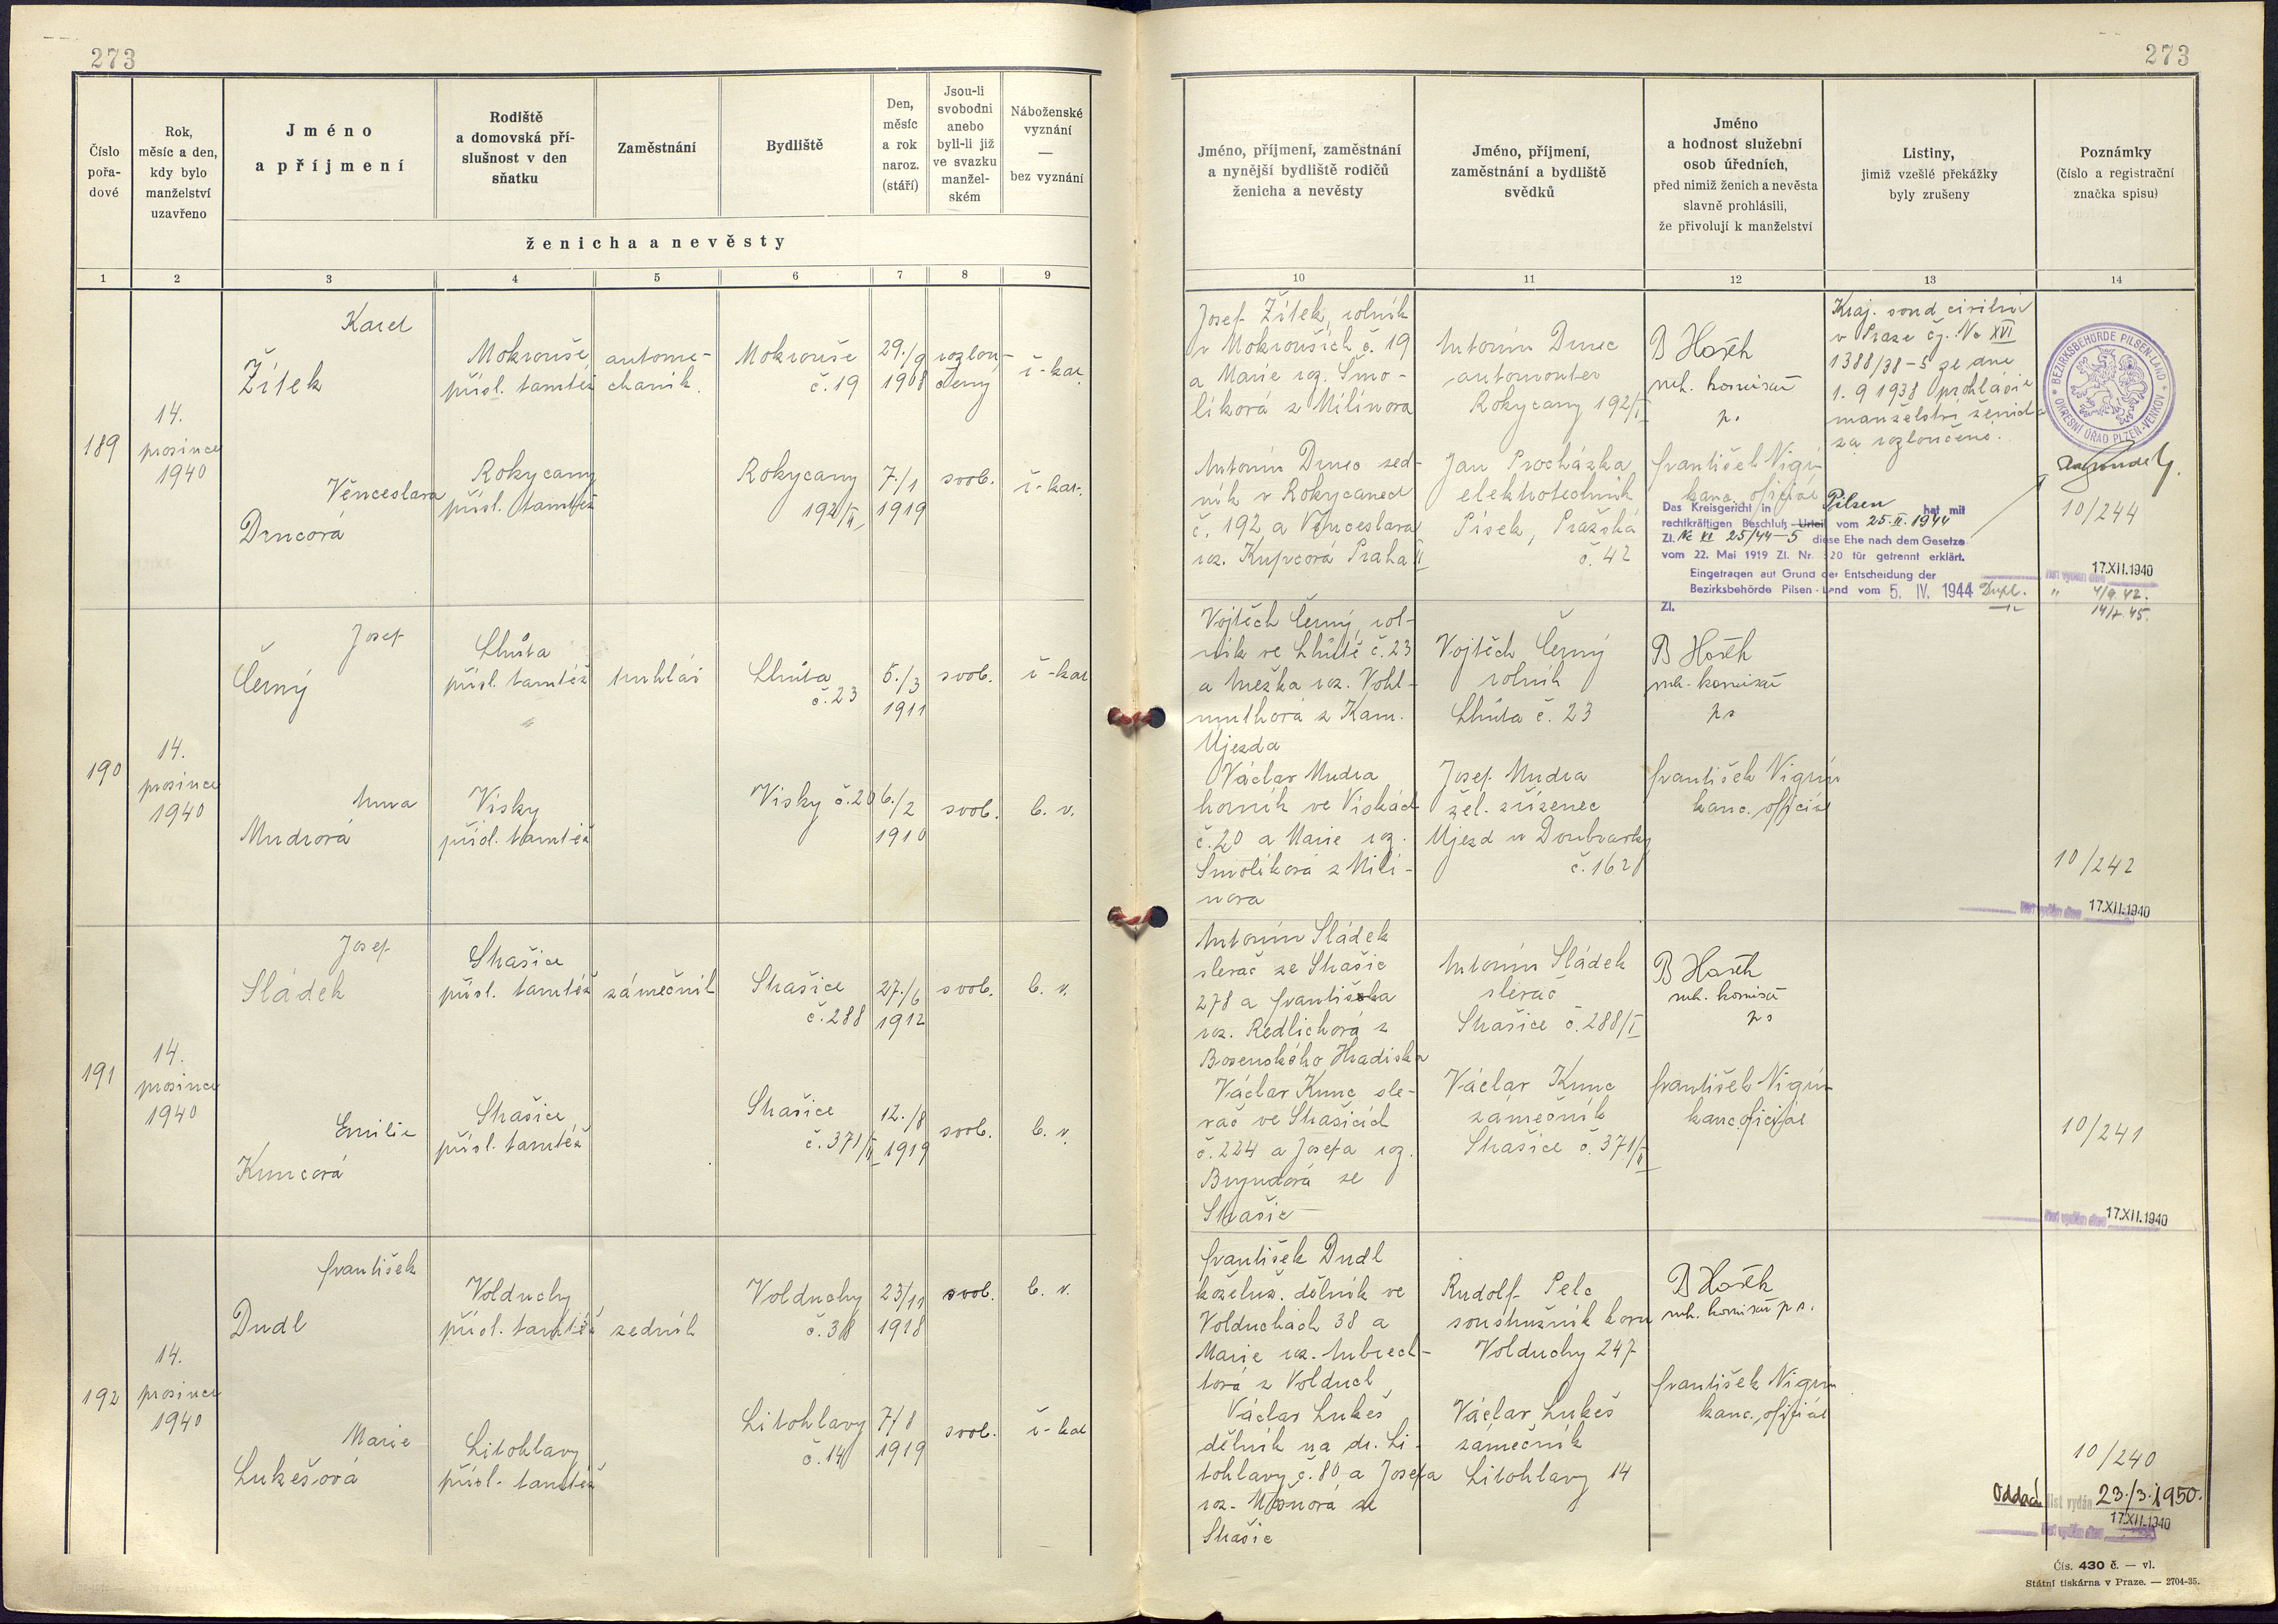 273
273
Číslo
pořa-
dové
Rok,
měsíc a den,
kdy bylo
manželství
uzavřeno
Jméno
a příjmení
Rodiště
a domovská pří-
slušnost v den
sňatku
Zaměstnání
Bydliště
Den,
měsíc
a rok
naroz.
(stáří)
Jsou-li
svobodni
anebo
byli-li již
ve svazku
manžel-
ském
Náboženské
vyznání
—
bez vyznání
ženicha a nevěsty
Jméno, příjmení, zaměstnání
a nynější bydliště rodičů
ženicha a nevěsty
Jméno, příjmení,
zaměstnání a bydliště
svědků
Jméno
a hodnost služební
osob úředních,
před nimiž ženich a nevěsta
slavně prohlásili,
že přivolují k manželství
Listiny,
jimiž vzešlé překážky
byly zrušeny
Poznámky
(číslo a registrační
značka spisu)
1 2 3 4 5 6 7 8 9 10 11 12 13 14
189
14.
prosince
1940
Karel
Žítek
Mokrouše
přísl. tamtéž
autome-
chanik
Mokrouše
č. 19
29./9
1908
rozlou-
čený
ř-kat.
Věnceslava
Drncová
Rokycany
přísl. tamtéž
Rokycany
192/II
7./1
1919
svob.
ř-kat.
Josef Žítek, rolník
v Mokrouších č. 19
a Marie roz. Smo-
líková z Milínova
Antonín Drnec sed-
ník v Rokycanech
č. 192 a Věnceslava
roz. Kupcová Praha II
Antonín Drnec
automonter
Rokycany 192/I
Jan Procházka
elektrotechnik
Písek, Pražská
č. 42
B Hošek
rub. komisař
ps
František Nigrin
kanc. oficiál
Kraj. soud civilní
v Praze čj. Nc XVI
1388/38-5 ze dne
1. 9 1938 prohlásil
manželství ženicha
za rozloučené.
BEZIRKSBEHÖRDE PILSEN-LAND
OKRESNÍ ÚŘAD PLZEŇ-VENKOV
10/244
Das Kreisgericht in Pilsen hat mit
rechtkräftigen Beschluß Urteil vom 25. II. 1944
Zl. Nc XI 25/44-5 diese Ehe nach dem Gesetze
vom 22. Mai 1919 Zl. Nr. 320 für getrennt erklärt.
Eingetragen auf Grund der Entscheidung der
Bezirksbehörde Pilsen-Land vom 5. IV. 1944
Zl.
list vydán dne 17.XII.1940
Dupl. " 4/9. 42.
14/7. 45.
190
14.
prosince
1940
Josef
Černý
Lhůta
přísl. tamtéž
truhlář
Lhůta
č. 23
5./3
1911
svob.
ř-kat
Anna
Mudrová
Vísky
přísl. tamtéž
Vísky č. 20
6./2
1910
svob.
b. v.
Vojtěch Černý, rol-
ník ve Lhůtě č. 23
a Anežka roz. Vohl-
muthová z Kam.
Újezda
Václav Mudra
horník ve Vískách
č. 20 a Marie roz.
Smolíková z Milí-
nova
Vojtěch Černý
rolník
Lhůta č. 23
Josef Mudra
žel. zřízenec
Újezd u Doubravky
č. 162
B Hošek
rub. komisař
ps
František Nigrin
kanc. oficiál
10/242
list vydán dne 17.XII.1940
191
14.
prosince
1940
Josef
Sládek
Strašice
přísl. tamtéž
zámečník
Strašice
č. 288
27./6
1912
svob.
b. v.
Emilie
Kuncová
Strašice
přísl. tamtéž
Strašice
č. 371/II
12./8
1919
svob.
b. v.
Antonín Sládek
slevač ze Strašic
278 a Františka
roz. Redlichová z
Bosenského Hradiska
Václav Kunc, sle-
vač ve Strašicích
č. 224 a Josefa roz.
Strašic
Antonín Sládek
slevač
Strašice č. 288/I
Václav Kunc
zámečník
Strašice č. 371/II
B Hošek
rub. komisař
ps
František Nigrin
kanc. oficiál
10/241
list vydán dne 17.XII.1940
192
14.
prosince
1940
František
Dudl
Volduchy
přísl. tamtéž
zedník
Volduchy
č. 38
23/11
1918
svob.
b. v.
Marie
Lukešová
Litohlavy
přísl. tamtéž
Litohlavy
č. 14
7/8
1919
svob.
ř-kat
František Dudl
koželuž. dělník ve
Volduchách 38 a
Marie roz. Aubrech-
tová z Volduch
Václav Lukeš
dělník na dr. Li-
tohlavy č. 80 a Josefa
Strašic
Rudolf Pelc
soustružník kovu
Volduchy 247
Václav Lukeš
zámečník
Litohlavy 14
B Hošek
rub. komisař ps.
František Nigrin
kanc. oficiál
10/240
Oddací list vydán 23./3. 1950.
list vydán dne 17.XII.1940
Čís. 430 č. — vl.
Státní tiskárna v Praze. — 2704-35.